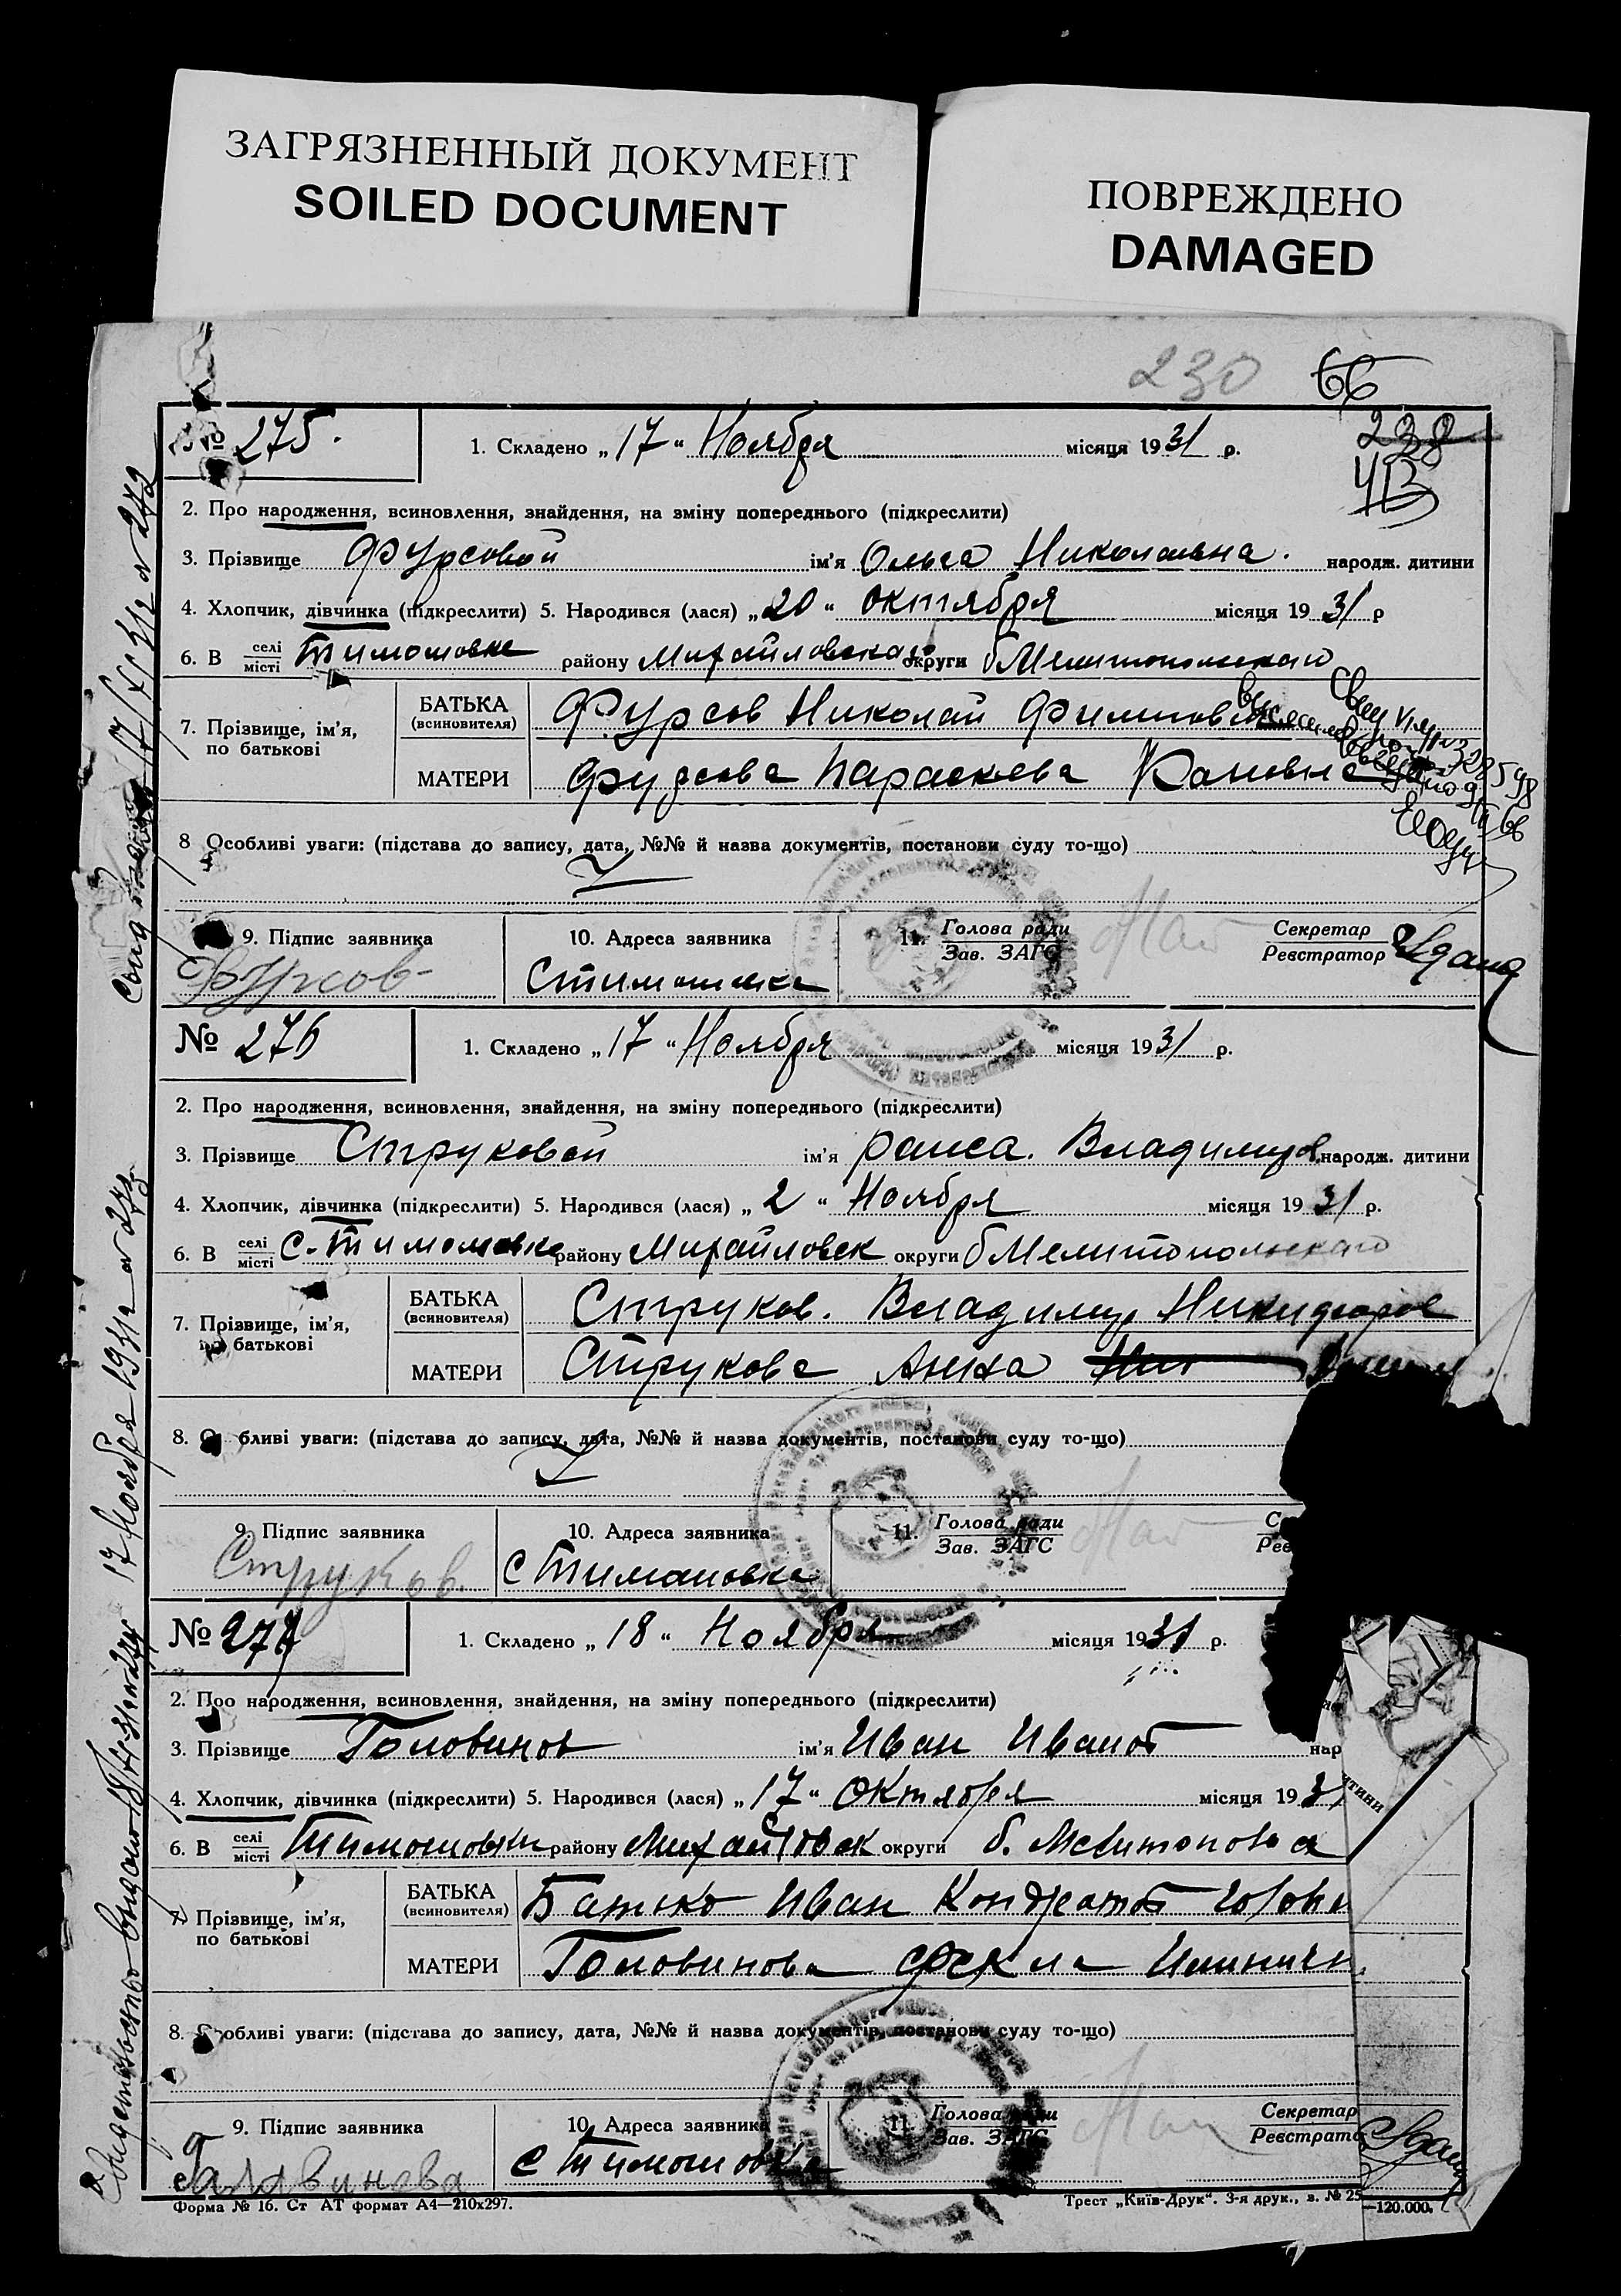 ЗАГРЯЗНЕННЫЙ ДОКУМЕНТ
SOILED DOCUMENT
ПОВРЕЖДЕНО
DAMAGED
230 66
238
№ 275. 1. Складено „17“ Ноября місяця 1931 р.
2. Про народження, всиновлення, знайдення, на зміну попереднього (підкреслити)
3. Прізвище Фурсовой ім'я Ольга Николаевна. народж. дитини
4. Хлопчик, дівчинка (підкреслити) 5. Народився (лася) „20“ октября місяця 1931 р
6. В селі місті Тимошовке району Михайловского округи б Мелитопольского
7. Прізвище, ім'я, по батькові
БАТЬКА (всиновителя) Фурсов Николай Филипов
МАТЕРИ Фурсова Параскева
8 Особливі уваги: (підстава до запису, дата, №№ й назва документів, постанови суду то-що)
9. Підпис заявника 10. Адреса заявника 11. Голова ради Зав. ЗАГС Секретар Реєстратор
Фурсов Стимошовка
№ 276 1. Складено „17“ Ноября місяця 1931 р.
2. Про народження, всиновлення, знайдення, на зміну попереднього (підкреслити)
3. Прізвище Струковой ім'я раиса. Владимиров народж. дитини
4. Хлопчик, дівчинка (підкреслити) 5. Народився (лася) „2“ Ноября місяця 1931 р.
6. В селі місті С. Тимошовка району Михайловск округи б Мелитопольского
7. Прізвище, ім'я, по батькові
БАТЬКА (всиновителя) Струков. Владимир Никифоров
МАТЕРИ Струкова Анна
8. О бливі уваги: (підстава до запису, дата, №№ й назва документів, постанови суду то-що)
9. Підпис заявника 10. Адреса заявника 11. Голова ради Зав. ЗАГС
Струков. С Тимановка
№ 277 1. Складено „18“ Ноября місяця 1931 р.
2. Про народження, всиновлення, знайдення, на зміну попереднього (підкреслити)
3. Прізвище Головинов ім'я Иван Иванов нар
4. Хлопчик, дівчинка (підкреслити) 5. Народився (лася) „17“ Октября місяця 193
6. В селі місті Тимошовки району Михайловск округи б. Мелитополь
7. Прізвище, ім'я, по батькові
БАТЬКА (всиновителя) Батько Иван Кондратов
МАТЕРИ Головинова Фекла
8. Особливі уваги: (підстава до запису, дата, №№ й назва документів, постанови суду то-що)
9. Підпис заявника 10. Адреса заявника 11. Голова ради Зав. ЗАГС Секретар Реєстрато
Галавинова с Тимошовка
Форма № 16. Ст АТ формат А4—210х297. Трест „Київ-Друк“. 3-я друк., з. № 25 —120.000.